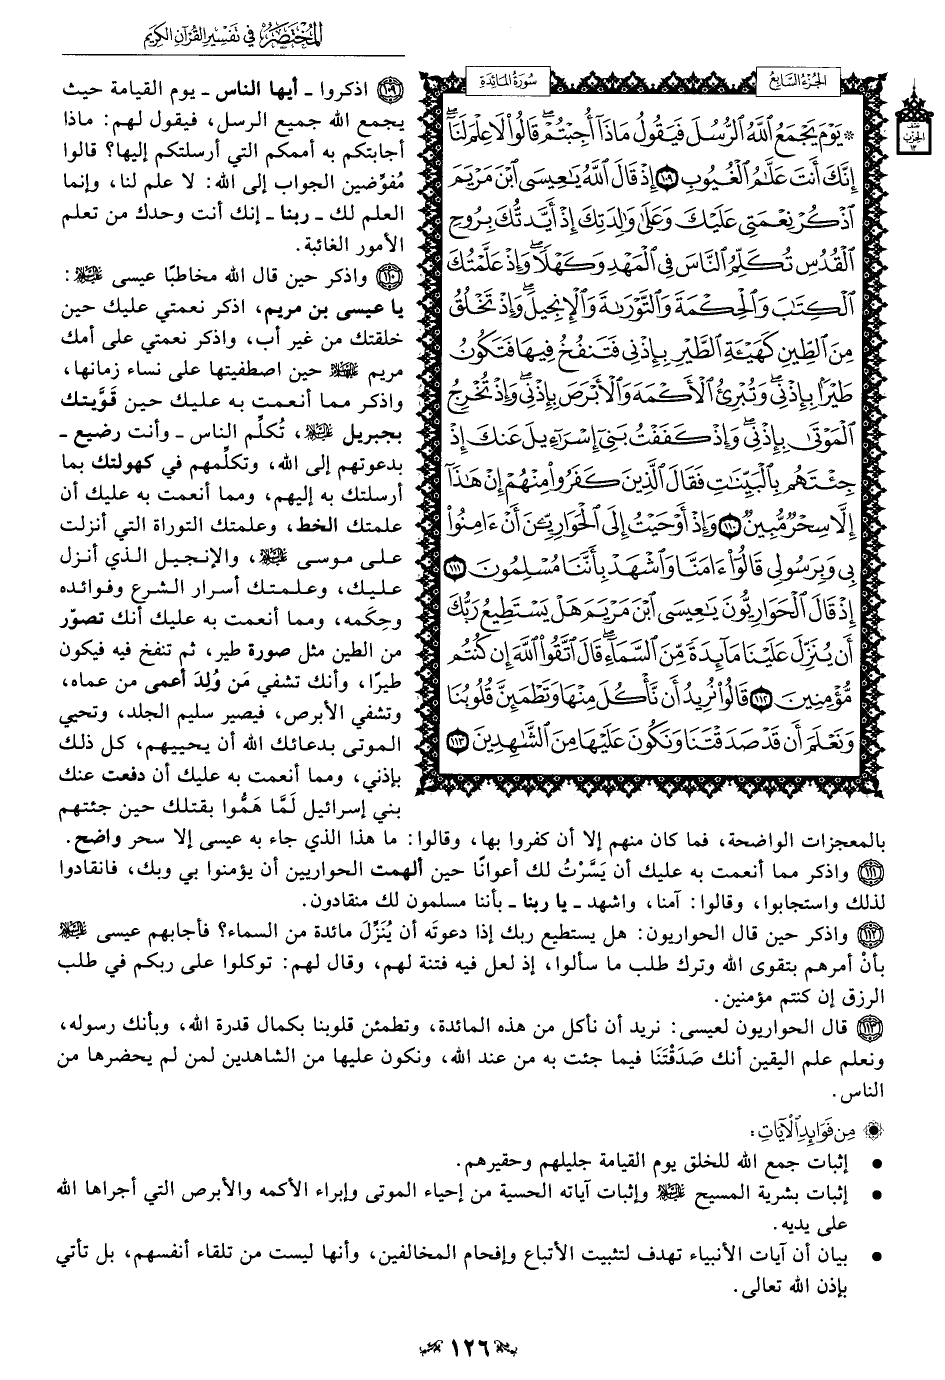 المختصر في تفسير القرآن الكريم
الجزء السابع
سورة المائدة
نصف الحزب ١٣
۞ يَوْمَ يَجْمَعُ اللَّهُ الرُّسُلَ فَيَقُولُ مَاذَا أُجِبْتُمْ ۖ قَالُوا لَا عِلْمَ لَنَا ۖ
إِنَّكَ أَنتَ عَلَّامُ الْغُيُوبِ ١٠٩ إِذْ قَالَ اللَّهُ يَاعِيسَى ابْنَ مَرْيَمَ
اذْكُرْ نِعْمَتِي عَلَيْكَ وَعَلَىٰ وَالِدَتِكَ إِذْ أَيَّدتُّكَ بِرُوحِ
الْقُدُسِ تُكَلِّمُ النَّاسَ فِي الْمَهْدِ وَكَهْلًا ۖ وَإِذْ عَلَّمْتُكَ
الْكِتَابَ وَالْحِكْمَةَ وَالتَّوْرَاةَ وَالْإِنجِيلَ ۖ وَإِذْ تَخْلُقُ
مِنَ الطِّينِ كَهَيْئَةِ الطَّيْرِ بِإِذْنِي فَتَنفُخُ فِيهَا فَتَكُونُ
طَيْرًا بِإِذْنِي ۖ وَتُبْرِئُ الْأَكْمَهَ وَالْأَبْرَصَ بِإِذْنِي ۖ وَإِذْ تُخْرِجُ
الْمَوْتَىٰ بِإِذْنِي ۖ وَإِذْ كَفَفْتُ بَنِي إِسْرَائِيلَ عَنكَ إِذْ
جِئْتَهُم بِالْبَيِّنَاتِ فَقَالَ الَّذِينَ كَفَرُوا مِنْهُمْ إِنْ هَٰذَا
إِلَّا سِحْرٌ مُّبِينٌ ١١٠ وَإِذْ أَوْحَيْتُ إِلَى الْحَوَارِيِّينَ أَنْ ءَامِنُوا
بِي وَبِرَسُولِي قَالُوا ءَامَنَّا وَاشْهَدْ بِأَنَّنَا مُسْلِمُونَ ١١١
إِذْ قَالَ الْحَوَارِيُّونَ يَاعِيسَى ابْنَ مَرْيَمَ هَلْ يَسْتَطِيعُ رَبُّكَ
أَن يُنَزِّلَ عَلَيْنَا مَائِدَةً مِّنَ السَّمَاءِ ۖ قَالَ اتَّقُوا اللَّهَ إِن كُنتُم
مُّؤْمِنِينَ ١١٢ قَالُوا نُرِيدُ أَن نَّأْكُلَ مِنْهَا وَتَطْمَئِنَّ قُلُوبُنَا
وَنَعْلَمَ أَن قَدْ صَدَقْتَنَا وَنَكُونَ عَلَيْهَا مِنَ الشَّاهِدِينَ ١١٣
١٠٩ اذكروا - أيها الناس - يوم القيامة حيث
يجمع الله جميع الرسل، فيقول لهم: ماذا
أجابتكم به أممكم التي أرسلتكم إليها؟ قالوا
مُفوِّضين الجواب إلى الله: لا علم لنا، وإنما
العلم لك - ربنا - إنك أنت وحدك من تعلم
الأمور الغائبة.
١١٠ واذكر حين قال الله مخاطبًا عيسى عليه السلام:
يا عيسى بن مريم، اذكر نعمتي عليك حين
خلقتك من غير أب، واذكر نعمتي على أمك
مريم عليها السلام حين اصطفيتها على نساء زمانها،
واذكر مما أنعمت به عليك حين قَوَّيتك
بجبريل عليه السلام، تُكلِّم الناس - وأنت رضيع -
بدعوتهم إلى الله، وتكلِّمهم في كهولتك بما
أرسلتك به إليهم، ومما أنعمت به عليك أن
علمتك الخط، وعلمتك التوراة التي أنزلت
على موسى عليه السلام، والإنجيل الذي أنزل
عليك، وعلمتك أسرار الشرع وفوائده
وحِكَمه، ومما أنعمت به عليك أنك تصوّر
من الطين مثل صورة طير، ثم تنفخ فيه فيكون
طيرًا، وأنك تشفي مَن وُلِدَ أعمى من عماه،
وتشفي الأبرص، فيصير سليم الجلد، وتحيي
الموتى بدعائك الله أن يحييهم، كل ذلك
بإذني، ومما أنعمت به عليك أن دفعت عنك
بني إسرائيل لَمَّا هَمُّوا بقتلك حين جئتهم
بالمعجزات الواضحة، فما كان منهم إلا أن كفروا بها، وقالوا: ما هذا الذي جاء به عيسى إلا سحر واضح.
١١١ واذكر مما أنعمت به عليك أن يَسَّرْتُ لك أعوانًا حين ألهمت الحواريين أن يؤمنوا بي وبك، فانقادوا
لذلك واستجابوا، وقالوا: آمنا، واشهد - يا ربنا - بأننا مسلمون لك منقادون.
١١٢ واذكر حين قال الحواريون: هل يستطيع ربك إذا دعوتَه أن يُنَزِّلَ مائدة من السماء؟ فأجابهم عيسى عليه السلام
بأنْ أمرهم بتقوى الله وترك طلب ما سألوا، إذ لعل فيه فتنة لهم، وقال لهم: توكلوا على ربكم في طلب
الرزق إن كنتم مؤمنين.
١١٣ قال الحواريون لعيسى: نريد أن نأكل من هذه المائدة، وتطمئن قلوبنا بكمال قدرة الله، وبأنك رسوله،
ونعلم علم اليقين أنك صَدَقْتَنَا فيما جئت به من عند الله، ونكون عليها من الشاهدين لمن لم يحضرها من
الناس.
مِن فَوَائِدِ الْآيَاتِ:
• إثبات جمع الله للخلق يوم القيامة جليلهم وحقيرهم.
• إثبات بشرية المسيح عليه السلام وإثبات آياته الحسية من إحياء الموتى وإبراء الأكمه والأبرص التي أجراها الله
على يديه.
• بيان أن آيات الأنبياء تهدف لتثبيت الأتباع وإفحام المخالفين، وأنها ليست من تلقاء أنفسهم، بل تأتي
بإذن الله تعالى.
١٢٦